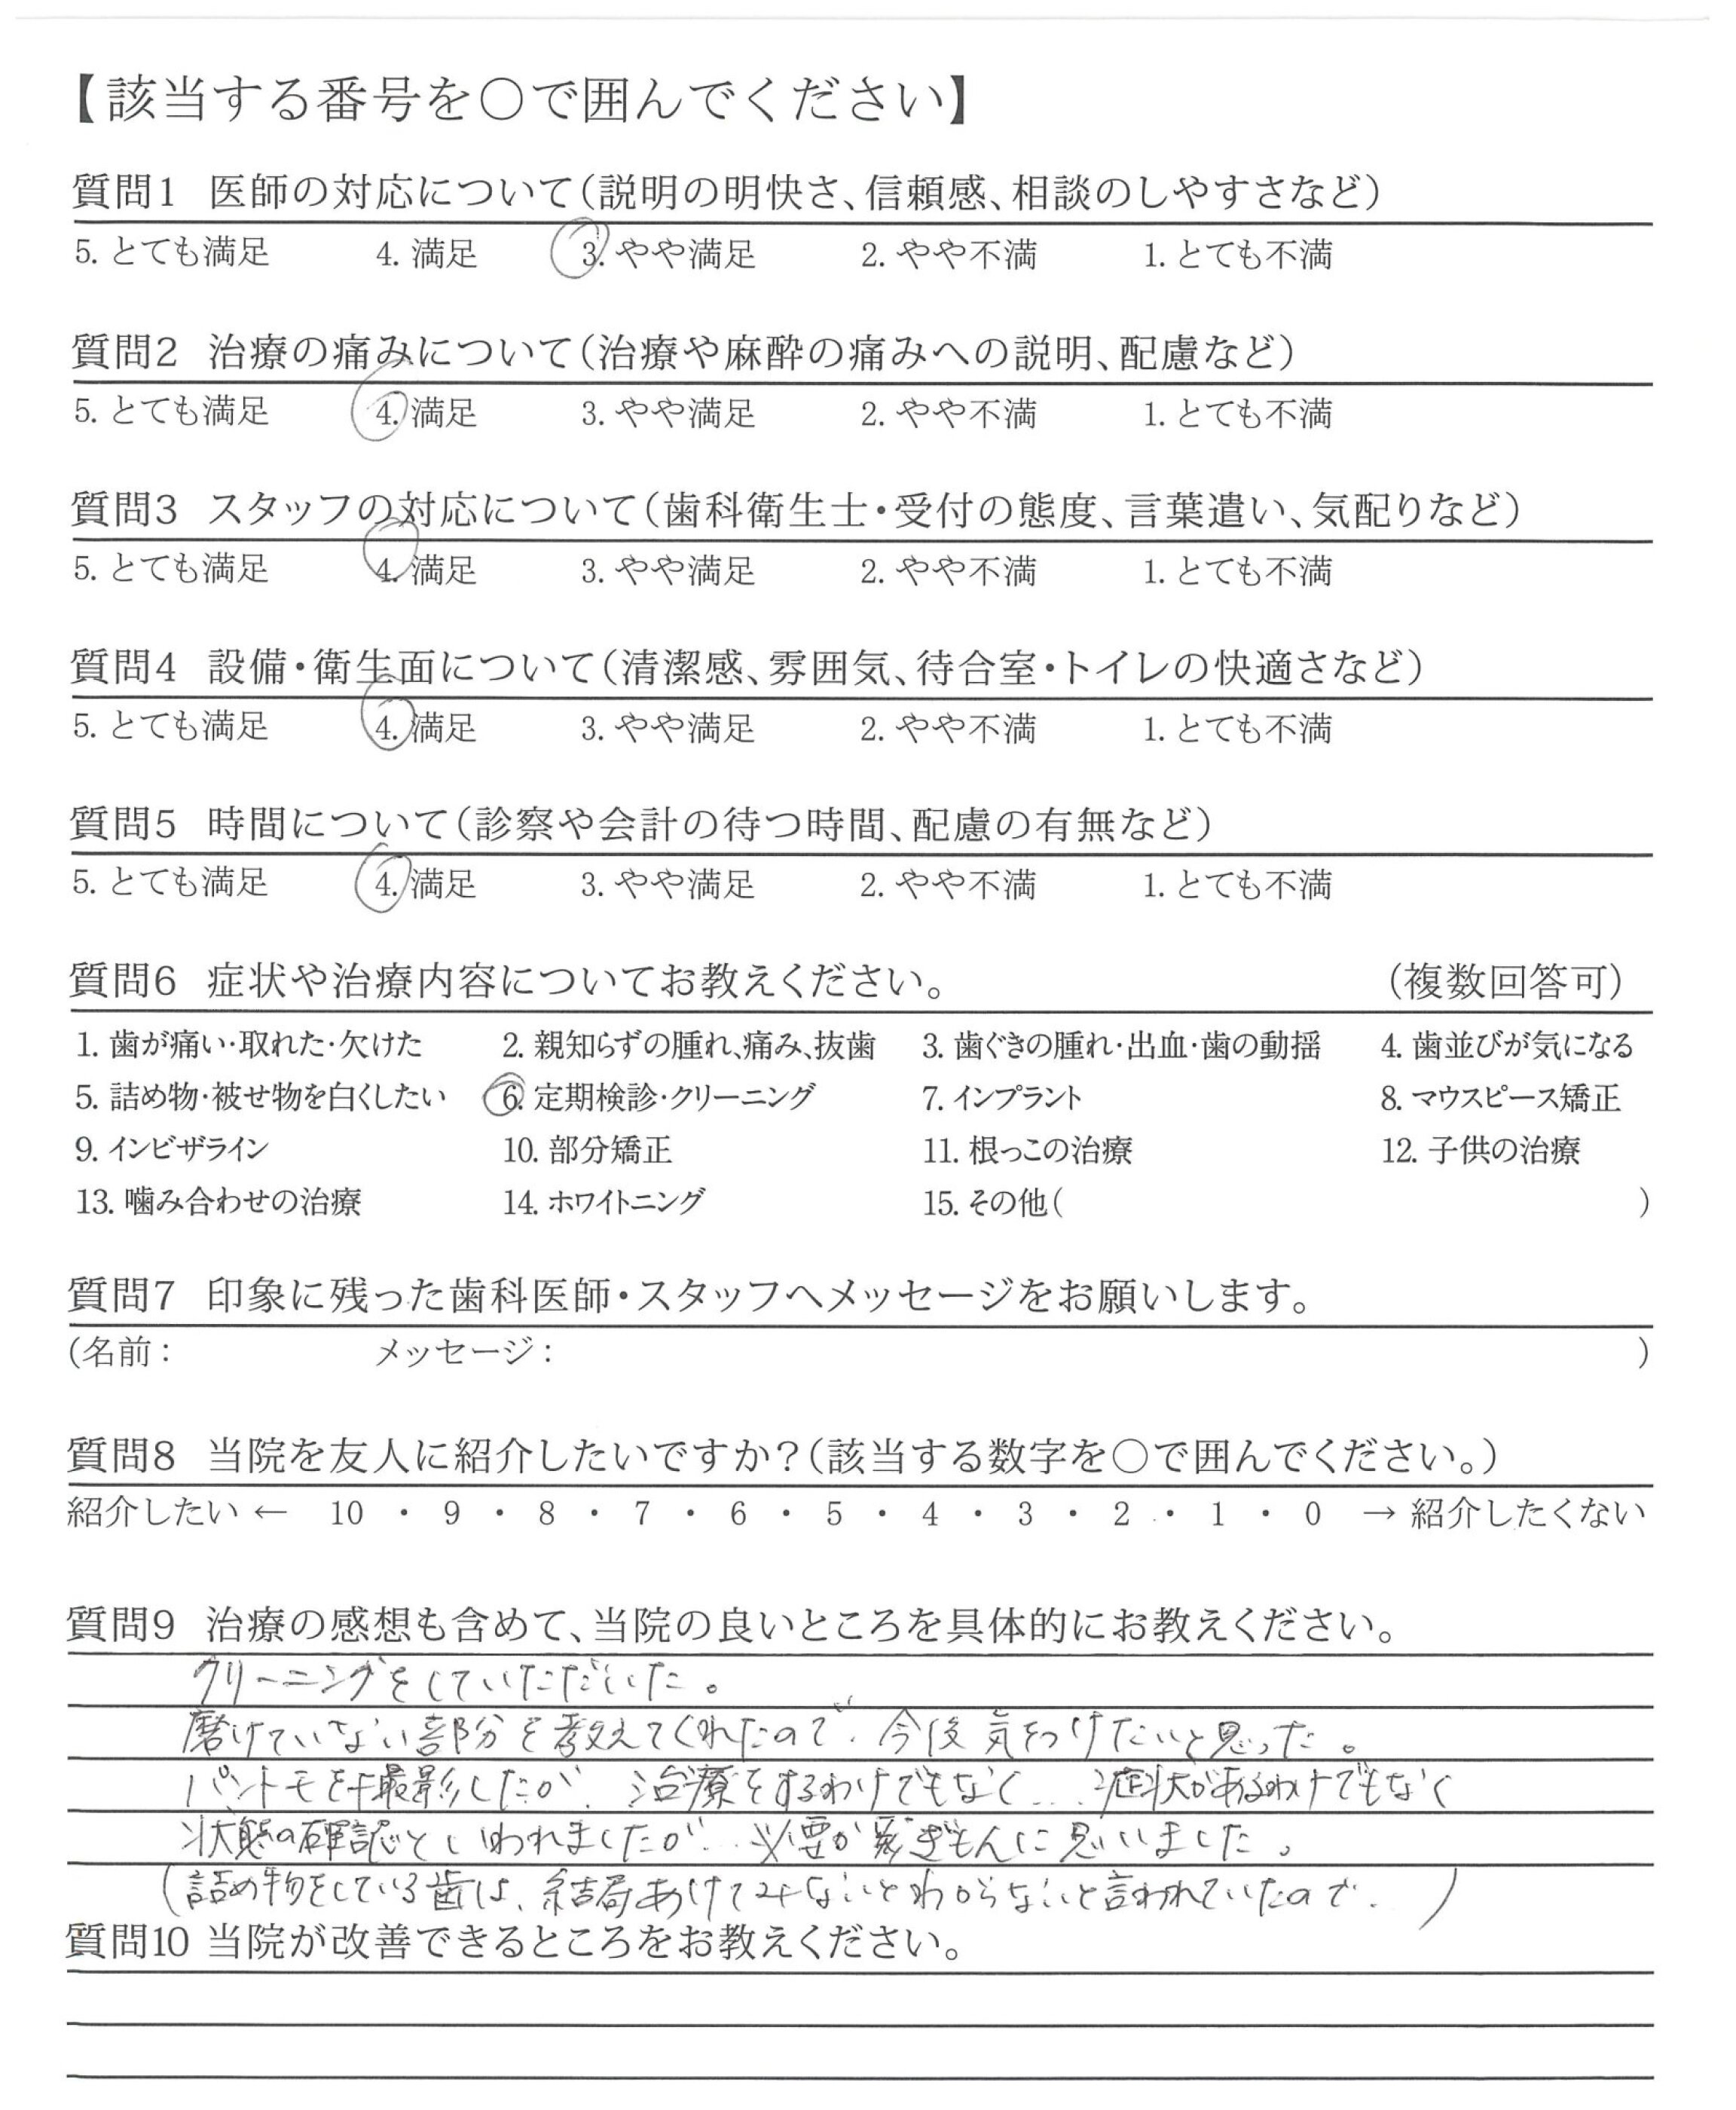 【該当する番号を○で囲んでください】
質問1 医師の対応について(説明の明快さ、信頼感、相談のしやすさなど)
5. とても満足 4. 満足 3. やや満足 2. やや不満 1. とても不満
質問2 治療の痛みについて(治療や麻酔の痛みへの説明、配慮など)
5. とても満足 4. 満足 3. やや満足 2. やや不満 1. とても不満
質問3 スタッフの対応について(歯科衛生士・受付の態度、言葉遣い、気配りなど)
5. とても満足 4. 満足 3. やや満足 2. やや不満 1. とても不満
質問4 設備・衛生面について(清潔感、雰囲気、待合室・トイレの快適さなど)
5. とても満足 4. 満足 3. やや満足 2. やや不満 1. とても不満
質問5 時間について(診察や会計の待つ時間、配慮の有無など)
5. とても満足 4. 満足 3. やや満足 2. やや不満 1. とても不満
質問6 症状や治療内容についてお教えください。 (複数回答可)
1. 歯が痛い・取れた・欠けた 2. 親知らずの腫れ、痛み、抜歯 3. 歯ぐきの腫れ・出血・歯の動揺 4. 歯並びが気になる
5. 詰め物・被せ物を白くしたい 6. 定期検診・クリーニング 7. インプラント 8. マウスピース矯正
9. インビザライン 10. 部分矯正 11. 根っこの治療 12. 子供の治療
13. 噛み合わせの治療 14. ホワイトニング 15. その他( )
質問7 印象に残った歯科医師・スタッフへメッセージをお願いします。
(名前: メッセージ: )
質問8 当院を友人に紹介したいですか?(該当する数字を○で囲んでください。)
紹介したい ← 10 ・ 9 ・ 8 ・ 7 ・ 6 ・ 5 ・ 4 ・ 3 ・ 2 ・ 1 ・ 0 → 紹介したくない
質問9 治療の感想も含めて、当院の良いところを具体的にお教えください。
クリーニングをしていただいた。
磨けていない部分を教えてくれたので、今後気をつけたいと思った。
パントモを撮影したが、治療をするわけでもなく...症状があるわけでもなく
状態の確認といわれましたが...必要か ぎもんに思いました。
(詰め物をしている歯は、結局あけてみないとわからないと言われていたので.)
質問10 当院が改善できるところをお教えください。